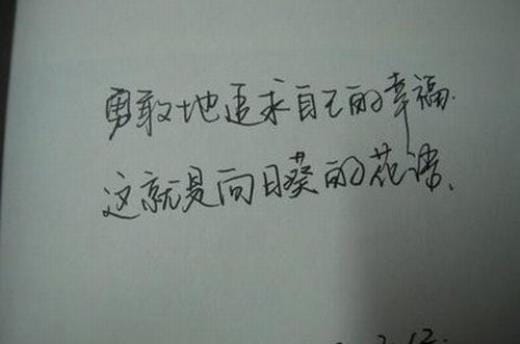 勇敢地追求自己的幸福.
这就是向日葵的花语、